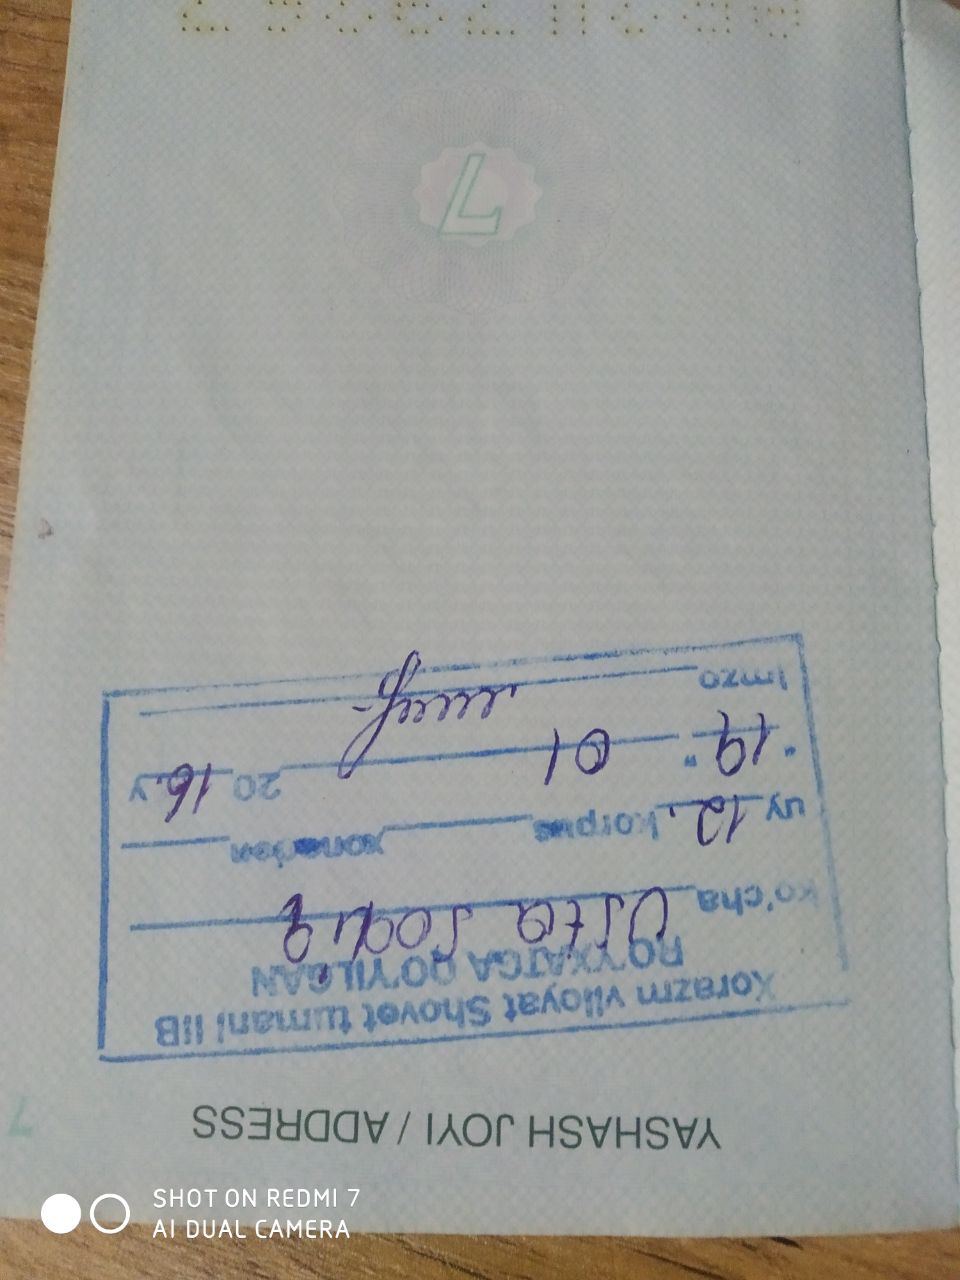 YASHASH JOYI / ADDRESS
7
Xorazm viloyat Shovot tumani IIB
RO'YXATGA QO'YILGAN
ko'cha Usta Sodiq
uy 12. korpus xonadon
"19" 01 2016.y
Imzo
7
SHOT ON REDMI 7
AI DUAL CAMERA